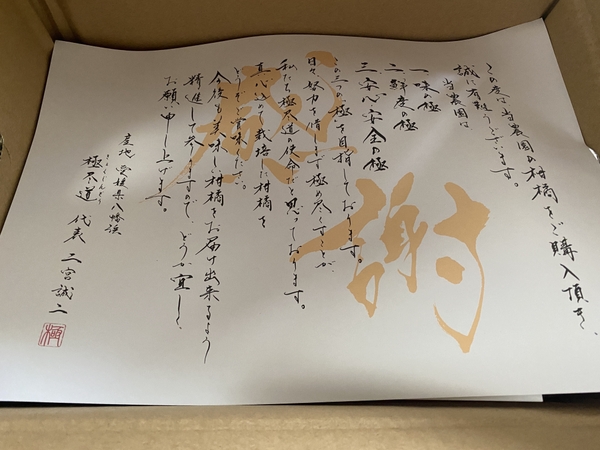 この度は当農園の柑橘をご購入頂き、
誠に有難うございます。
当農園は
一 味の極
二 鮮度の極
三 安心安全の極
この三つの極を目指しております。
日々努力を惜しまず極め尽くすことが、
私たち極尽道の使命だと思っております。
真心込めて栽培した柑橘を
どうぞご賞味ください。
今後も美味しい柑橘をお届け出来るよう
精進して参りますので、どうか宜しく
お願い申し上げます。
産地 愛媛県八幡浜
極尽道 代表 二宮誠二
感謝
極